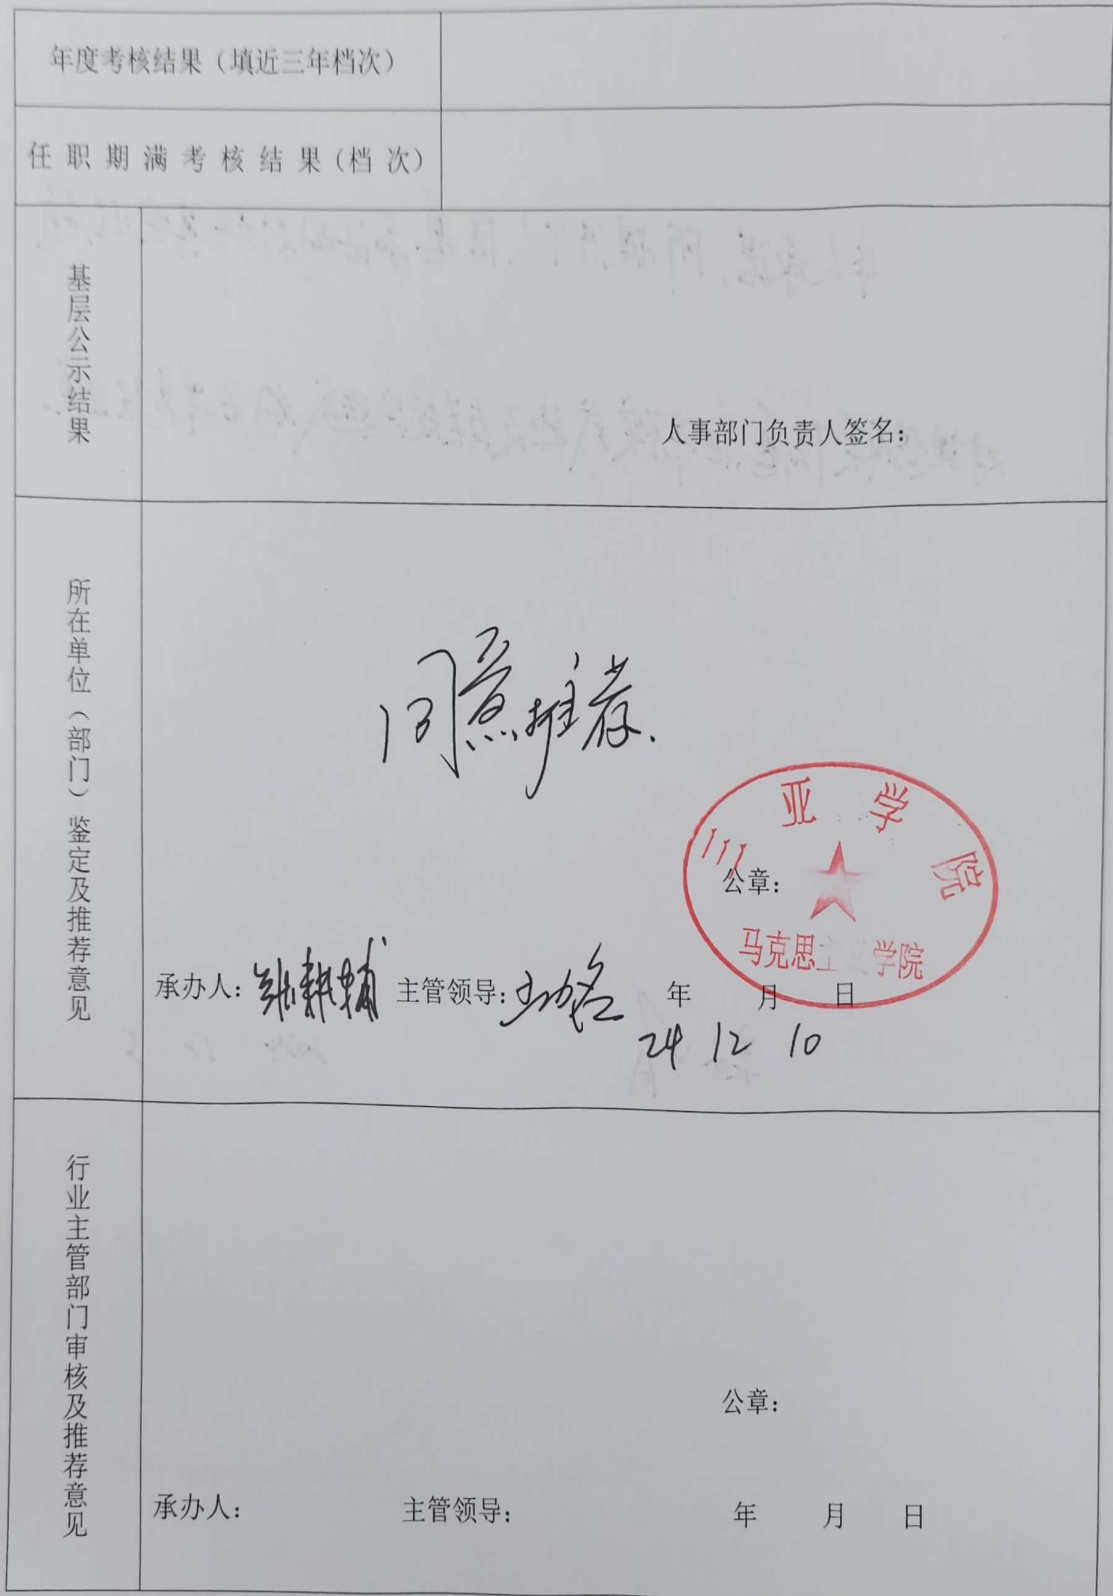 年度考核结果（填近三年档次）
任职期满考核结果（档次）
基层公示结果
人事部门负责人签名：
所在单位（部门）鉴定及推荐意见
同意推荐.
三亚学院
公章：
马克思主义学院
承办人： 主管领导： 年 月 日
24 12 10
行业主管部门审核及推荐意见
公章：
承办人： 主管领导： 年 月 日